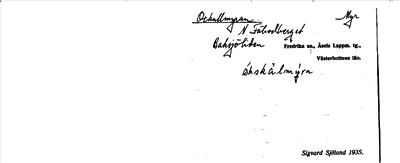 Ockullmyran Myr
N Fäbodberget
Baksjöliden Fredrika sn., Åsele Lappm. tg.,
Västerbottens län.
Ökskålmýra
Sigvard Sjöland 1935.